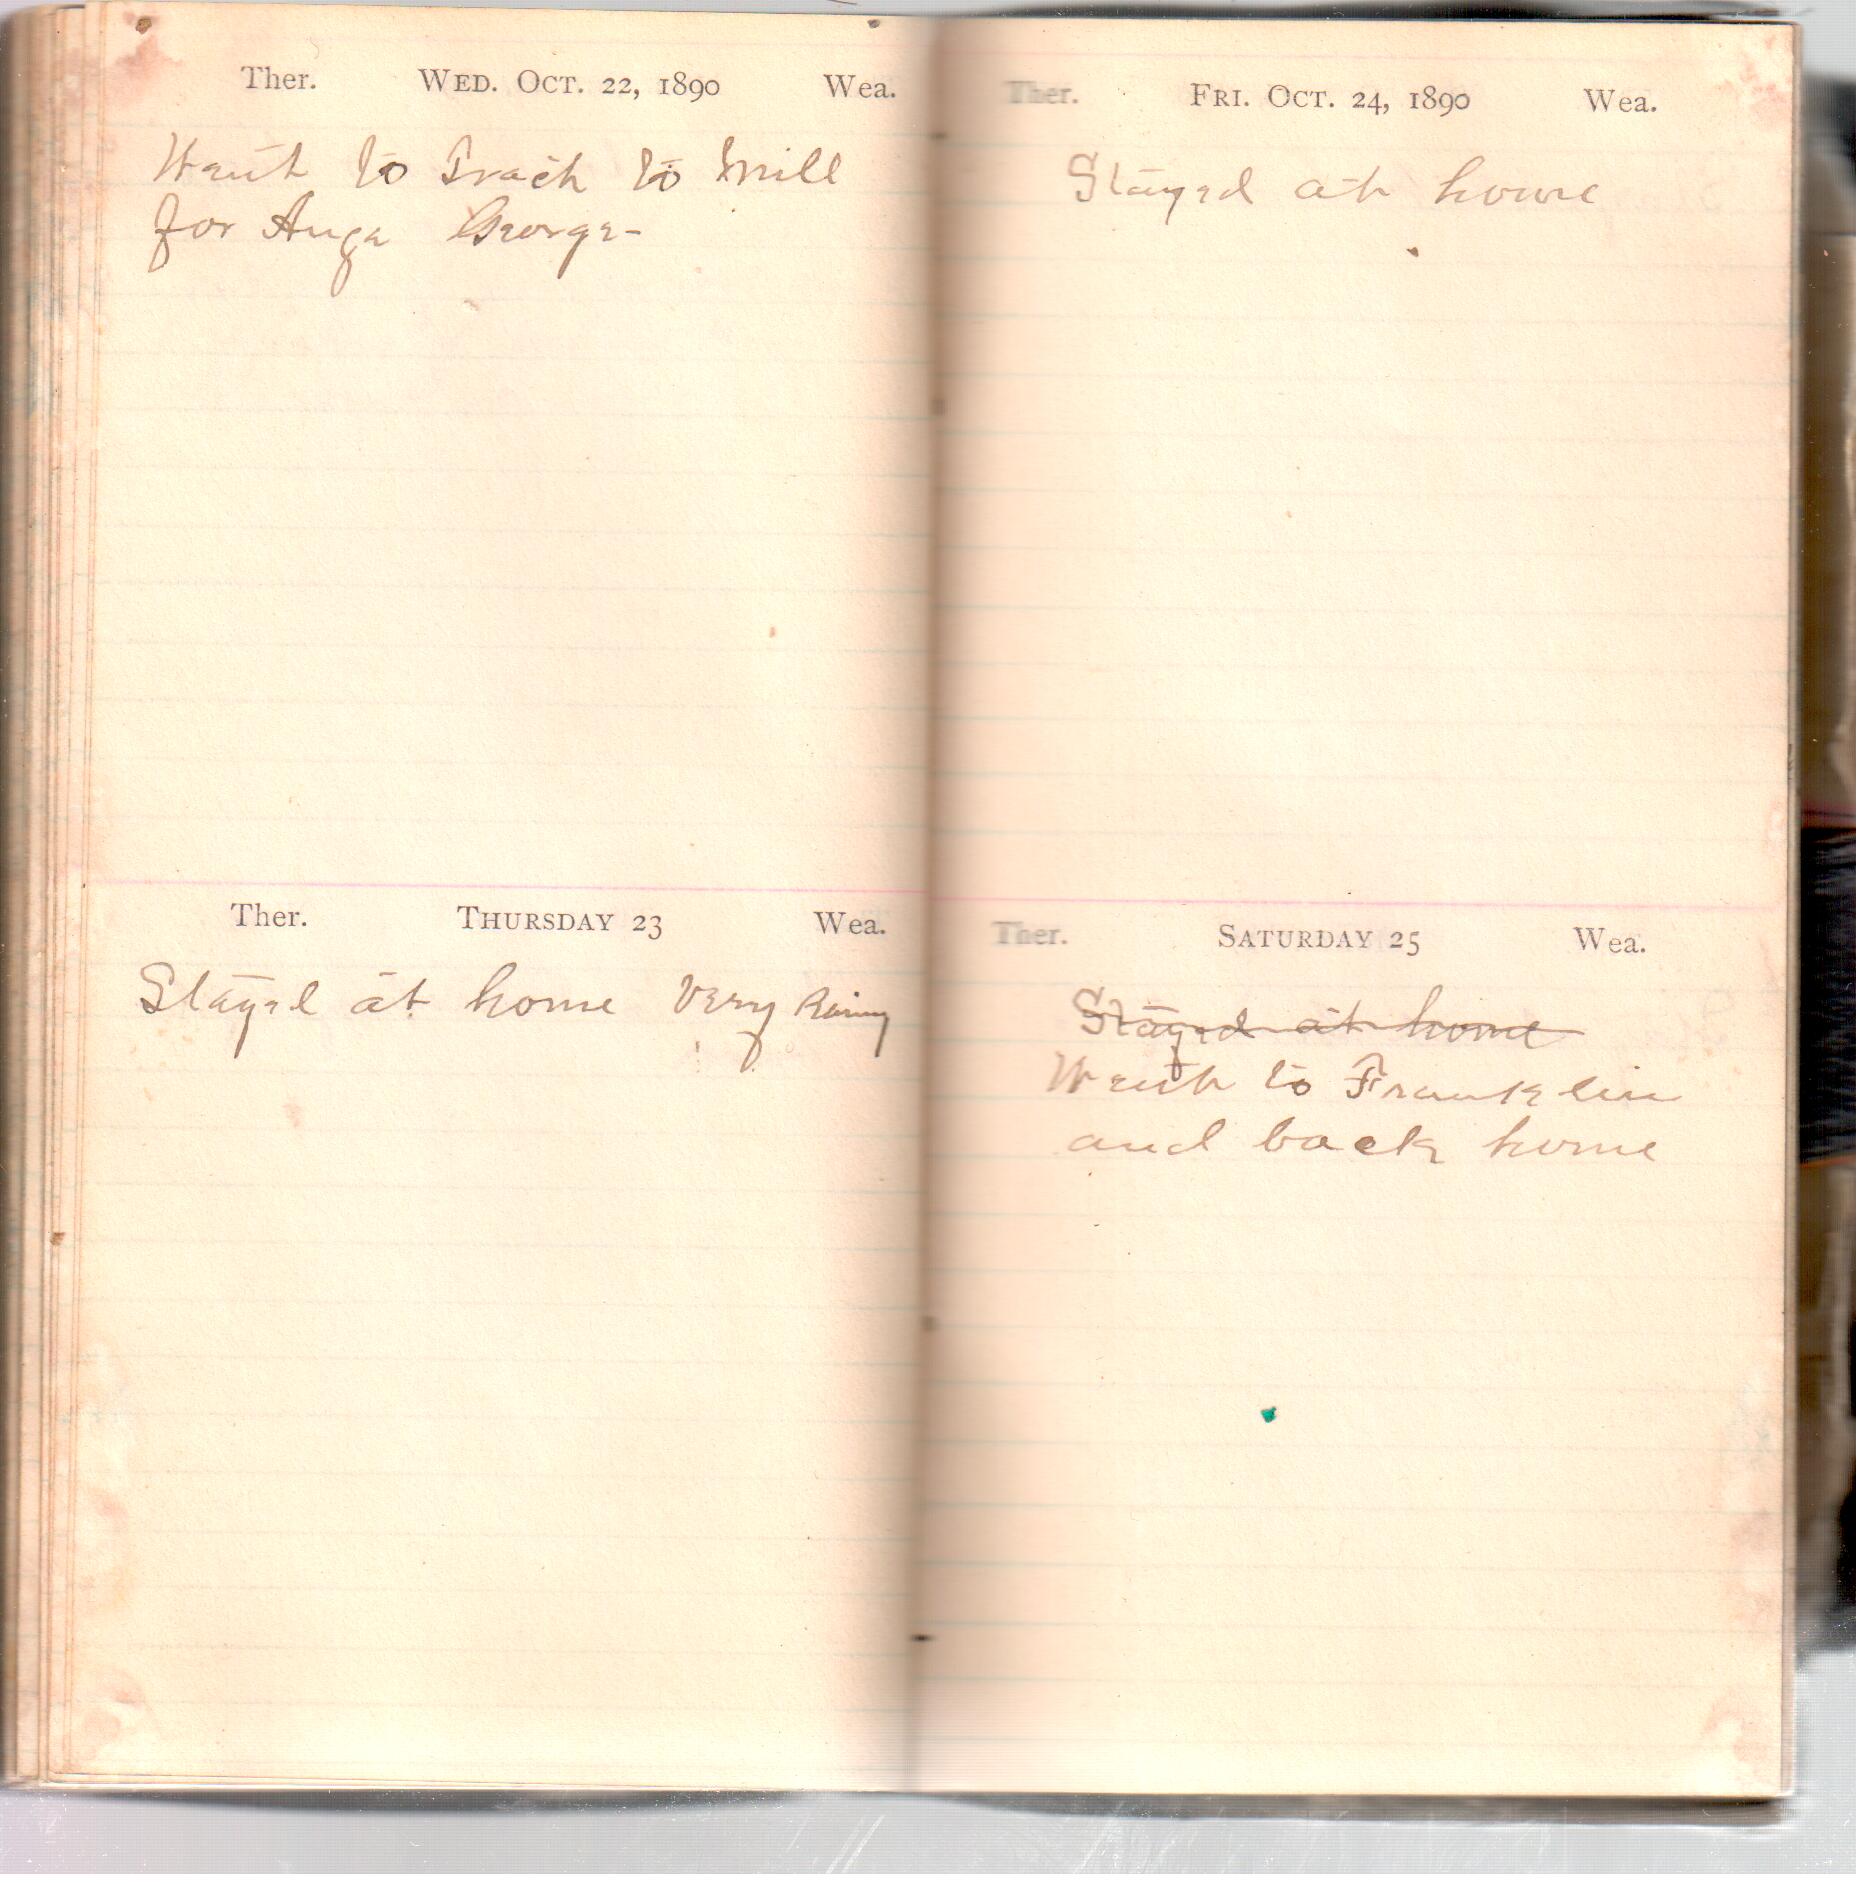 Ther. WED. OCT. 22, 1890 Wea.
Went to Trach to Mill
for Auga George-
Ther. THURSDAY 23 Wea.
Stayed at home Very Rainy
Ther. FRI. OCT. 24, 1890 Wea.
Stayed at home
Ther. SATURDAY 25 Wea.
Stayed at home
Went to Franklin
and back home